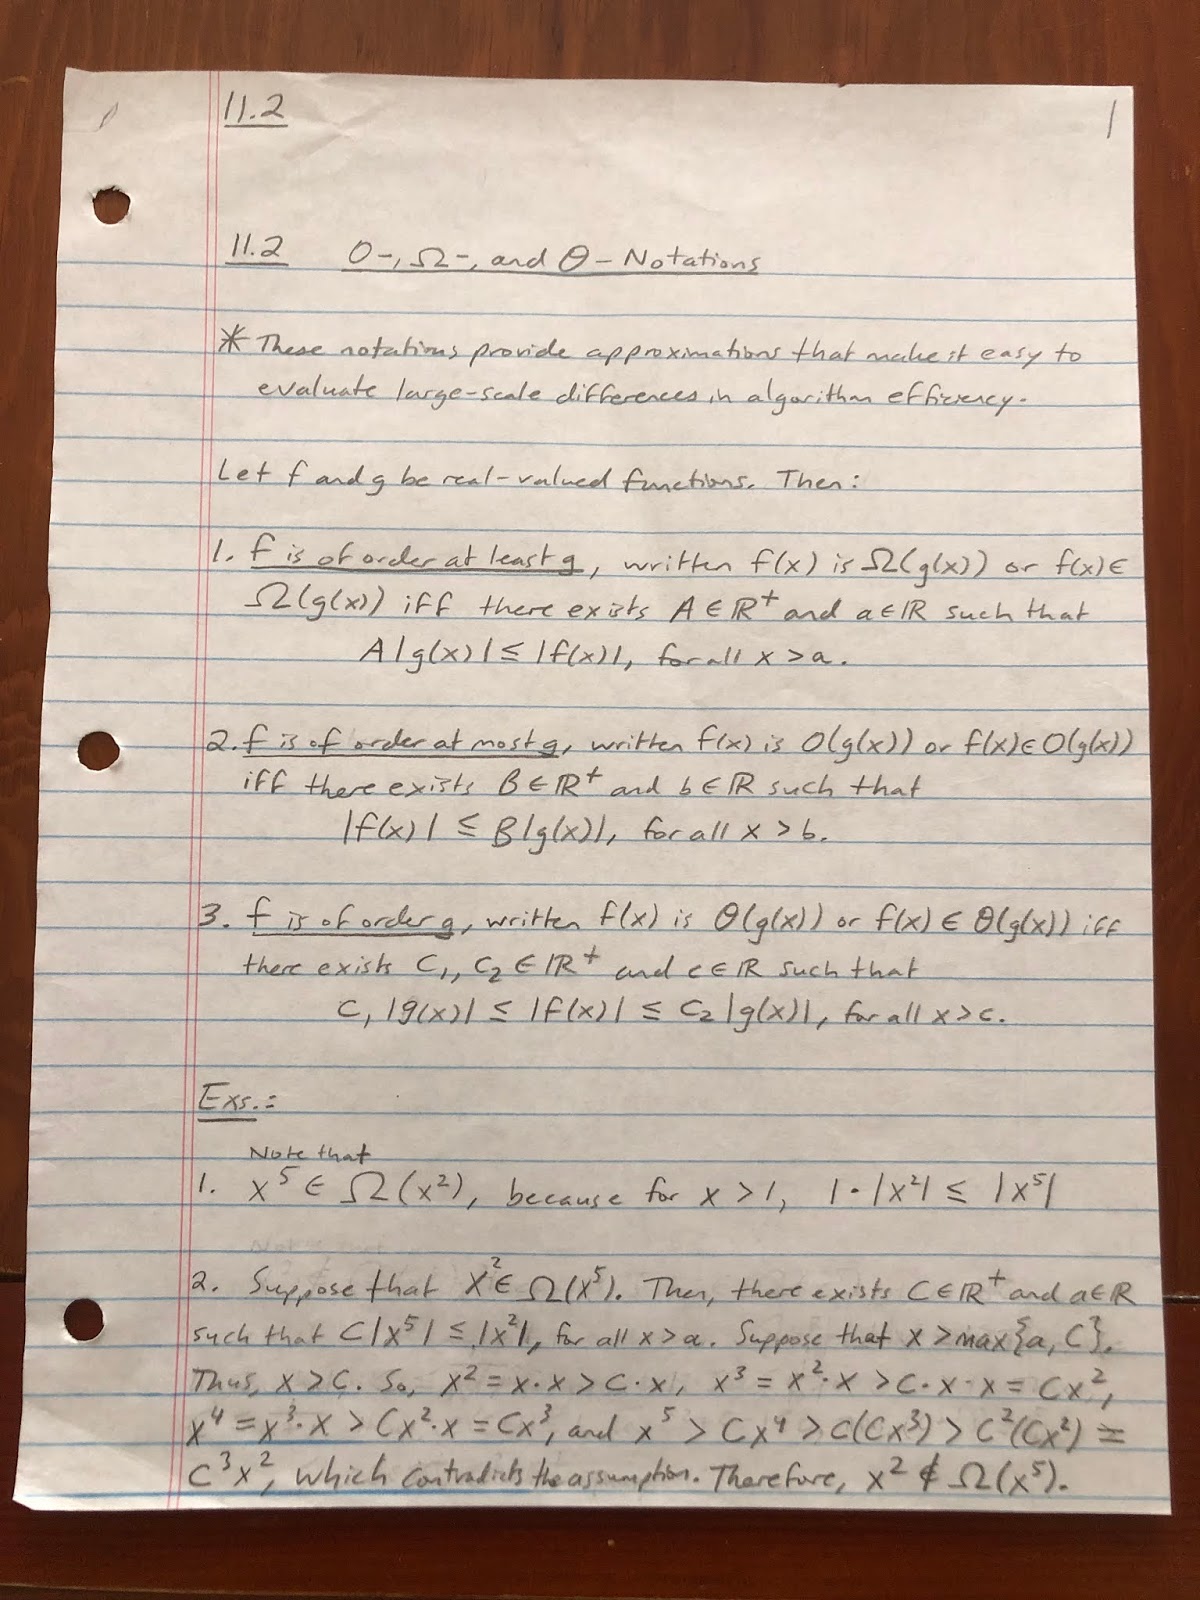 11.2
1
11.2 O-, Ω-, and Θ-Notations
* These notations provide approximations that make it easy to
evaluate large-scale differences in algorithm efficiency.
Let f and g be real-valued functions. Then:
1. f is of order at least g, written f(x) is Ω(g(x)) or f(x) ∈
Ω(g(x)) iff there exists A ∈ ℝ⁺ and a ∈ ℝ such that
A|g(x)| ≤ |f(x)|, for all x > a.
2. f is of order at most g, written f(x) is O(g(x)) or f(x) ∈ O(g(x))
iff there exists B ∈ ℝ⁺ and b ∈ ℝ such that
|f(x)| ≤ B|g(x)|, for all x > b.
3. f is of order g, written f(x) is Θ(g(x)) or f(x) ∈ Θ(g(x)) iff
there exists C₁, C₂ ∈ ℝ⁺ and c ∈ ℝ such that
C₁|g(x)| ≤ |f(x)| ≤ C₂|g(x)|, for all x > c.
Exs.:
Note that
1. x⁵ ∈ Ω(x²), because for x > 1, 1·|x²| ≤ |x⁵|
2. Suppose that x² ∈ Ω(x⁵). Then, there exists C ∈ ℝ⁺ and a ∈ ℝ
such that C|x⁵| ≤ |x²|, for all x > a. Suppose that x > max{a, C}.
Thus, x > C. So, x² = x·x > C·x, x³ = x²·x > C·x·x = Cx²,
x⁴ = x³·x > Cx²·x = Cx³, and x⁵ > Cx⁴ > C(Cx³) > C²(Cx²) =
C³x², which contradicts the assumption. Therefore, x² ∉ Ω(x⁵).